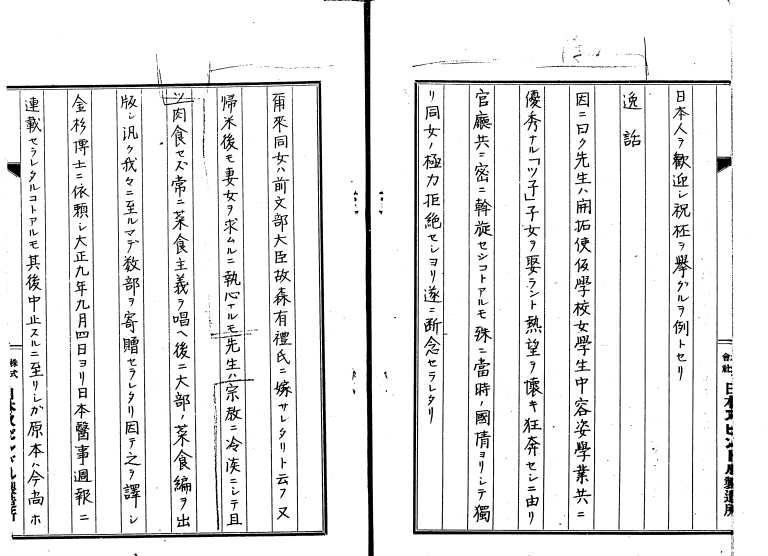 日本人ヲ歓迎シ祝坯ヲ擧グルヲ例トセリ
逸話
因ニ曰ク先生ハ開拓使仮学校女学生中容姿學業共ニ
優秀ナル「ツ子」子女ヲ娶ラント熱望ヲ懐キ狂奔セシニ由リ
官廳共ニ密ニ斡旋セシコトアルモ殊ニ當時ノ國情ヨリシテ獨
リ同女ノ極力拒絶セシヨリ遂ニ断念セラレタリ
爾来同女ハ前文部大臣故森有禮氏ニ嫁サレタリト云フ又
帰米後モ妻女ヲ求ムルニ執心ナルモ先生ハ宗教ニ冷淡ニシテ且
ツ肉食セズ常ニ菜食主義ヲ唱ヘ後ニ大部ノ菜食編ヲ出
版シ汎ク我々ニ至ルマデ数部ヲ寄贈セラレタリ因テ之ヲ譯シ
金杉博士ニ依頼シ大正九年九月四日ヨリ日本醫事週報ニ
連載セラレタルコトアルモ其後中止スルニ至リシガ原本ハ今尚ホ
株式